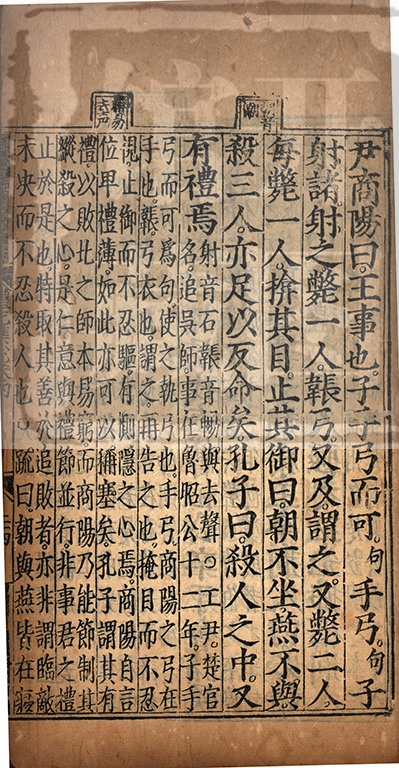 尹商陽曰。王事也。子手弓而可。句手弓。句子
射諸。射之。斃一人。韔弓。又及。謂之。又斃二人。
每斃一人。揜其目。止其御曰。朝不坐。燕不與。
殺三人。亦足以反命矣。孔子曰。殺人之中。又
有禮焉。射音石韔音暢與去聲○工尹楚官
名。追吳師。事在魯昭公十二年。子手
弓而可爲句使之執弓也。手弓商陽之弓在
手也。韔弓衣也。謂之再告之也。掩目而不忍
視止御而不忍驅。有惻隱之心焉。商陽自言
位卑禮薄。如此亦可以稱塞矣。孔子謂其有
禮以敗北之師本易窮。而商陽乃能節制其
縱殺之心。是仁意與禮節並行。非事君之禮
止於是也。特取其善於追敗者。亦非謂臨敵
未決而不忍殺人也○疏曰。朝與燕皆在寢